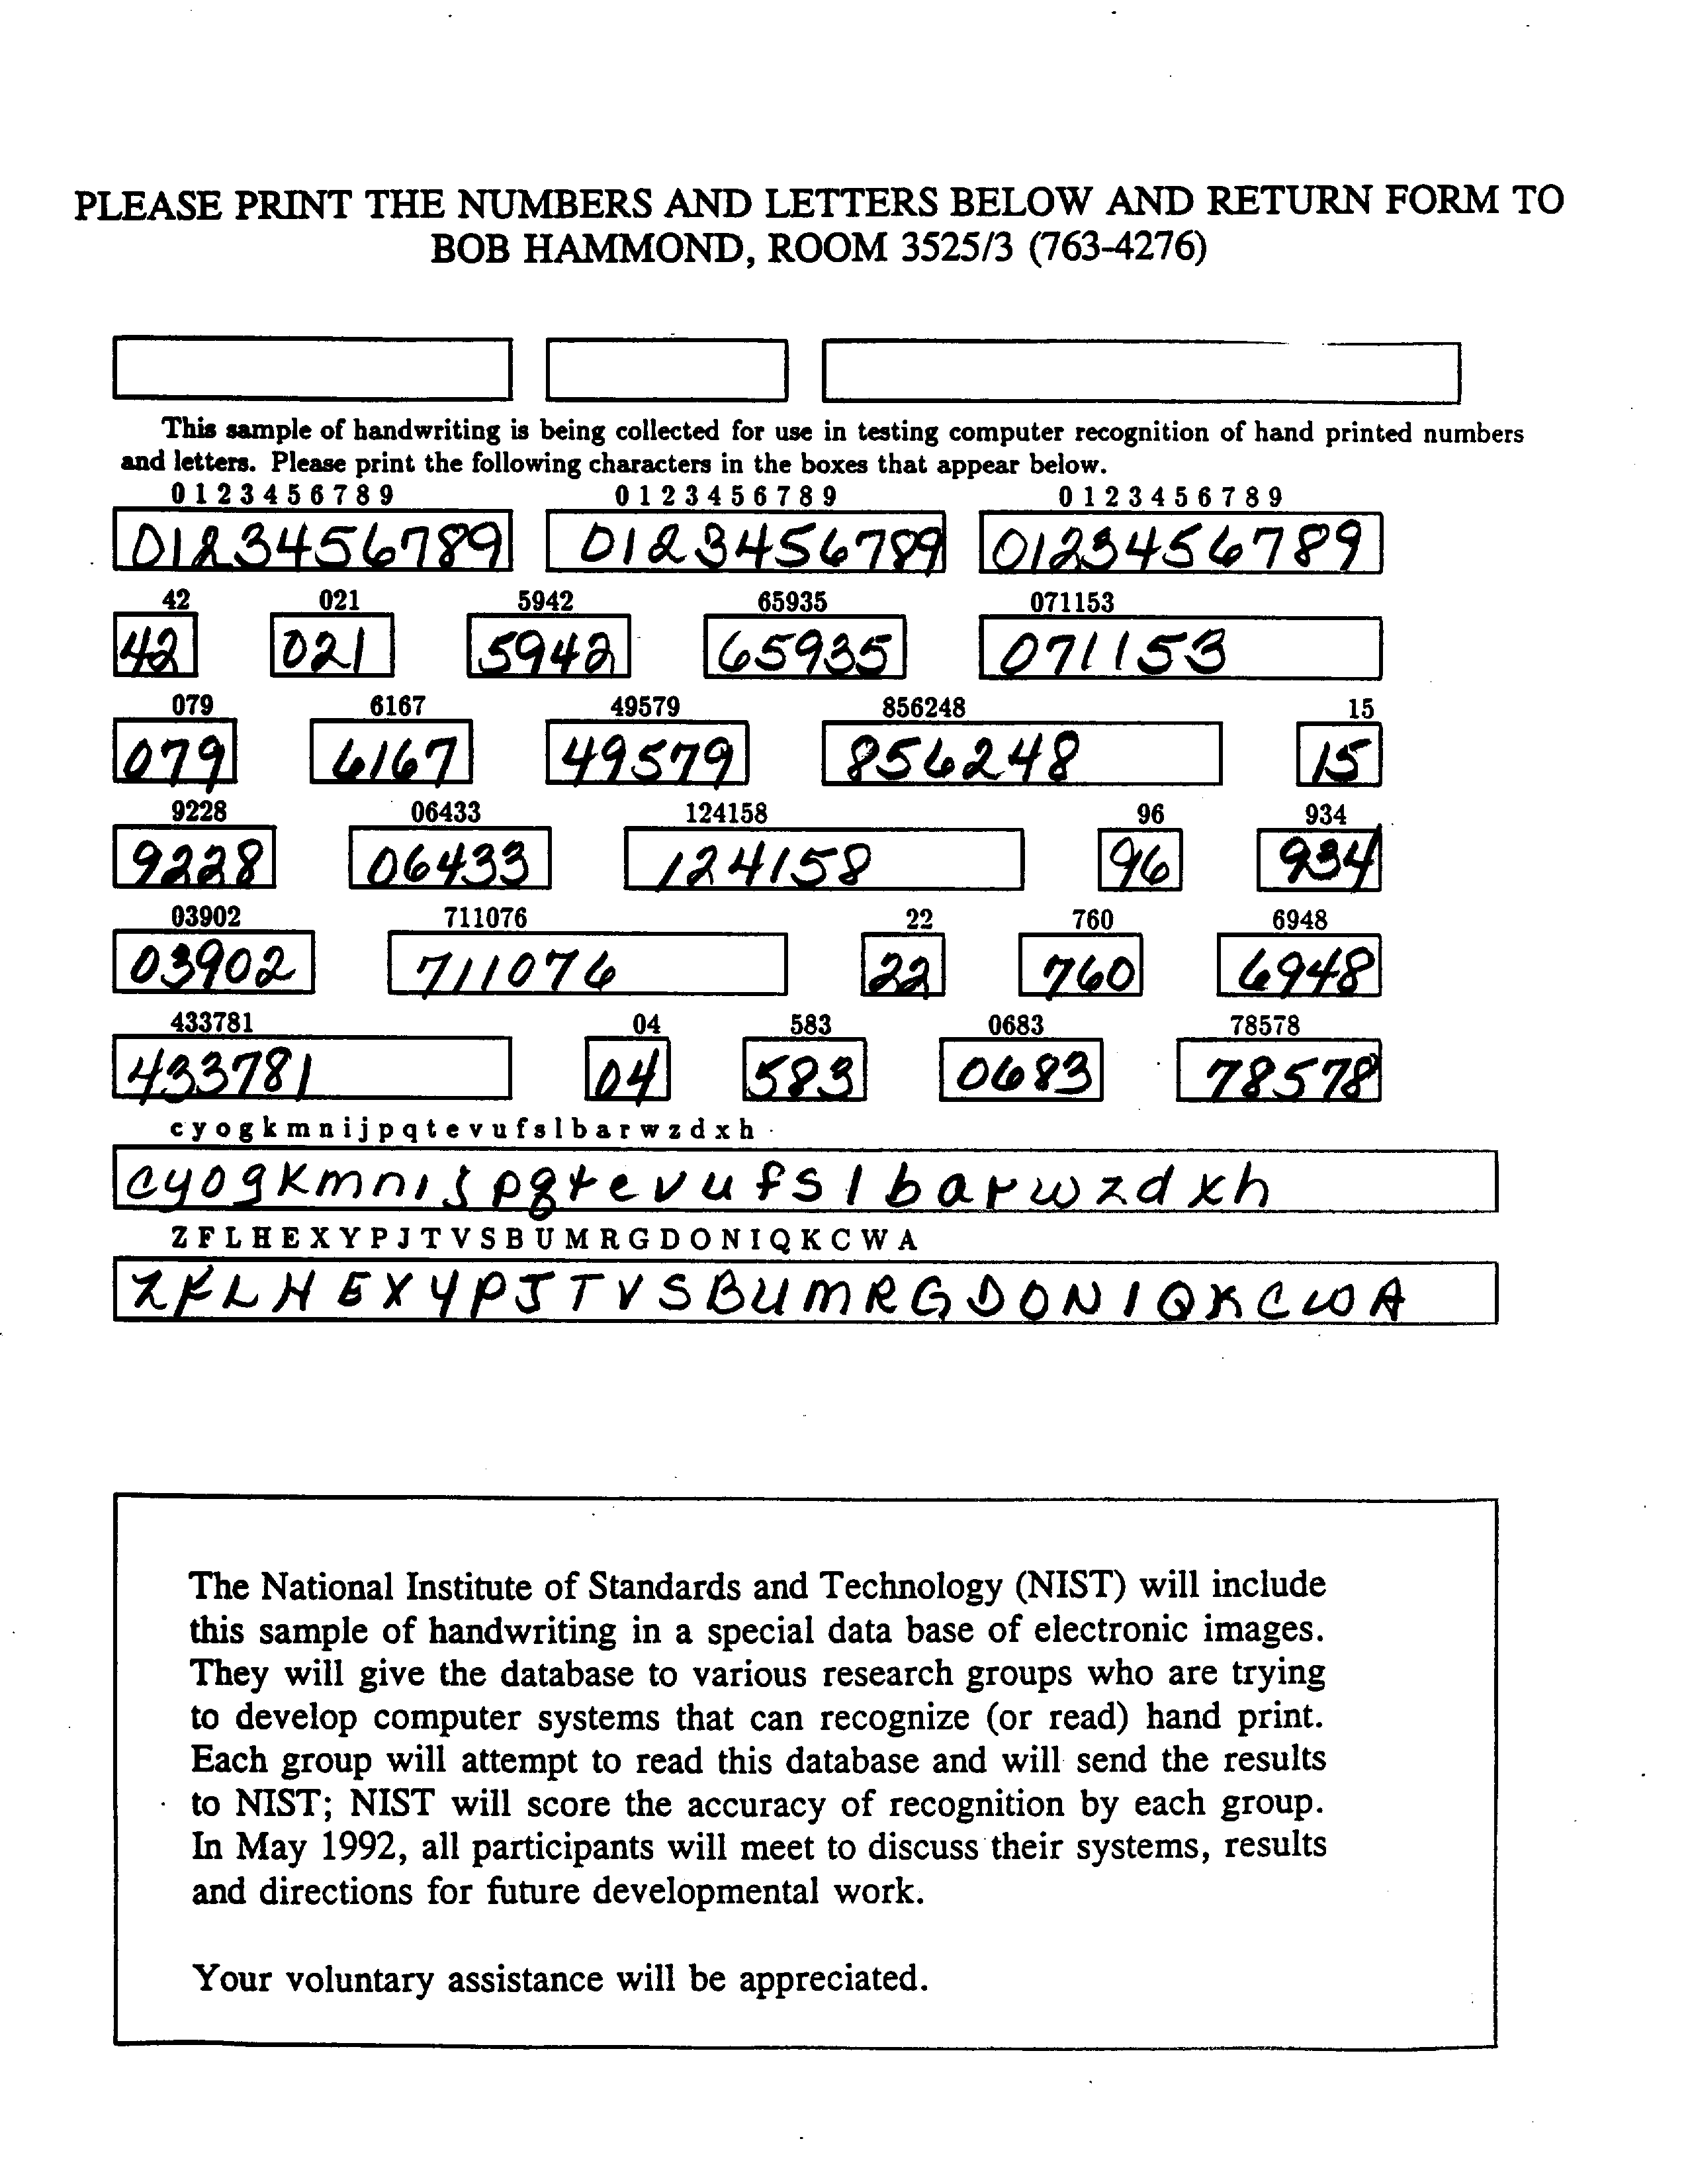 PLEASE PRINT THE NUMBERS AND LETTERS BELOW AND RETURN FORM TO
BOB HAMMOND, ROOM 3525/3 (763-4276)
This sample of handwriting is being collected for use in testing computer recognition of hand printed numbers
and letters. Please print the following characters in the boxes that appear below.
0 1 2 3 4 5 6 7 8 9 0 1 2 3 4 5 6 7 8 9 0 1 2 3 4 5 6 7 8 9
0123456789 0123456789 0123456789
42 021 5942 65935 071153
42 021 5942 65935 071153
079 6167 49579 856248 15
079 6167 49579 856248 15
9228 06433 124158 96 934
9228 06433 124158 96 934
03902 711076 22 760 6948
03902 711076 22 760 6948
433781 04 583 0683 78578
433781 04 583 0683 78578
c y o g k m n i j p q t e v u f s l b a r w z d x h
c y o g k m n i j p q t e v u f s l b a r w z d x h
Z F L H E X Y P J T V S B U M R G D O N I Q K C W A
Z F L H E X Y P J T V S B U M R G D O N I Q K C W A
The National Institute of Standards and Technology (NIST) will include
this sample of handwriting in a special data base of electronic images.
They will give the database to various research groups who are trying
to develop computer systems that can recognize (or read) hand print.
Each group will attempt to read this database and will send the results
to NIST; NIST will score the accuracy of recognition by each group.
In May 1992, all participants will meet to discuss their systems, results
and directions for future developmental work.
Your voluntary assistance will be appreciated.